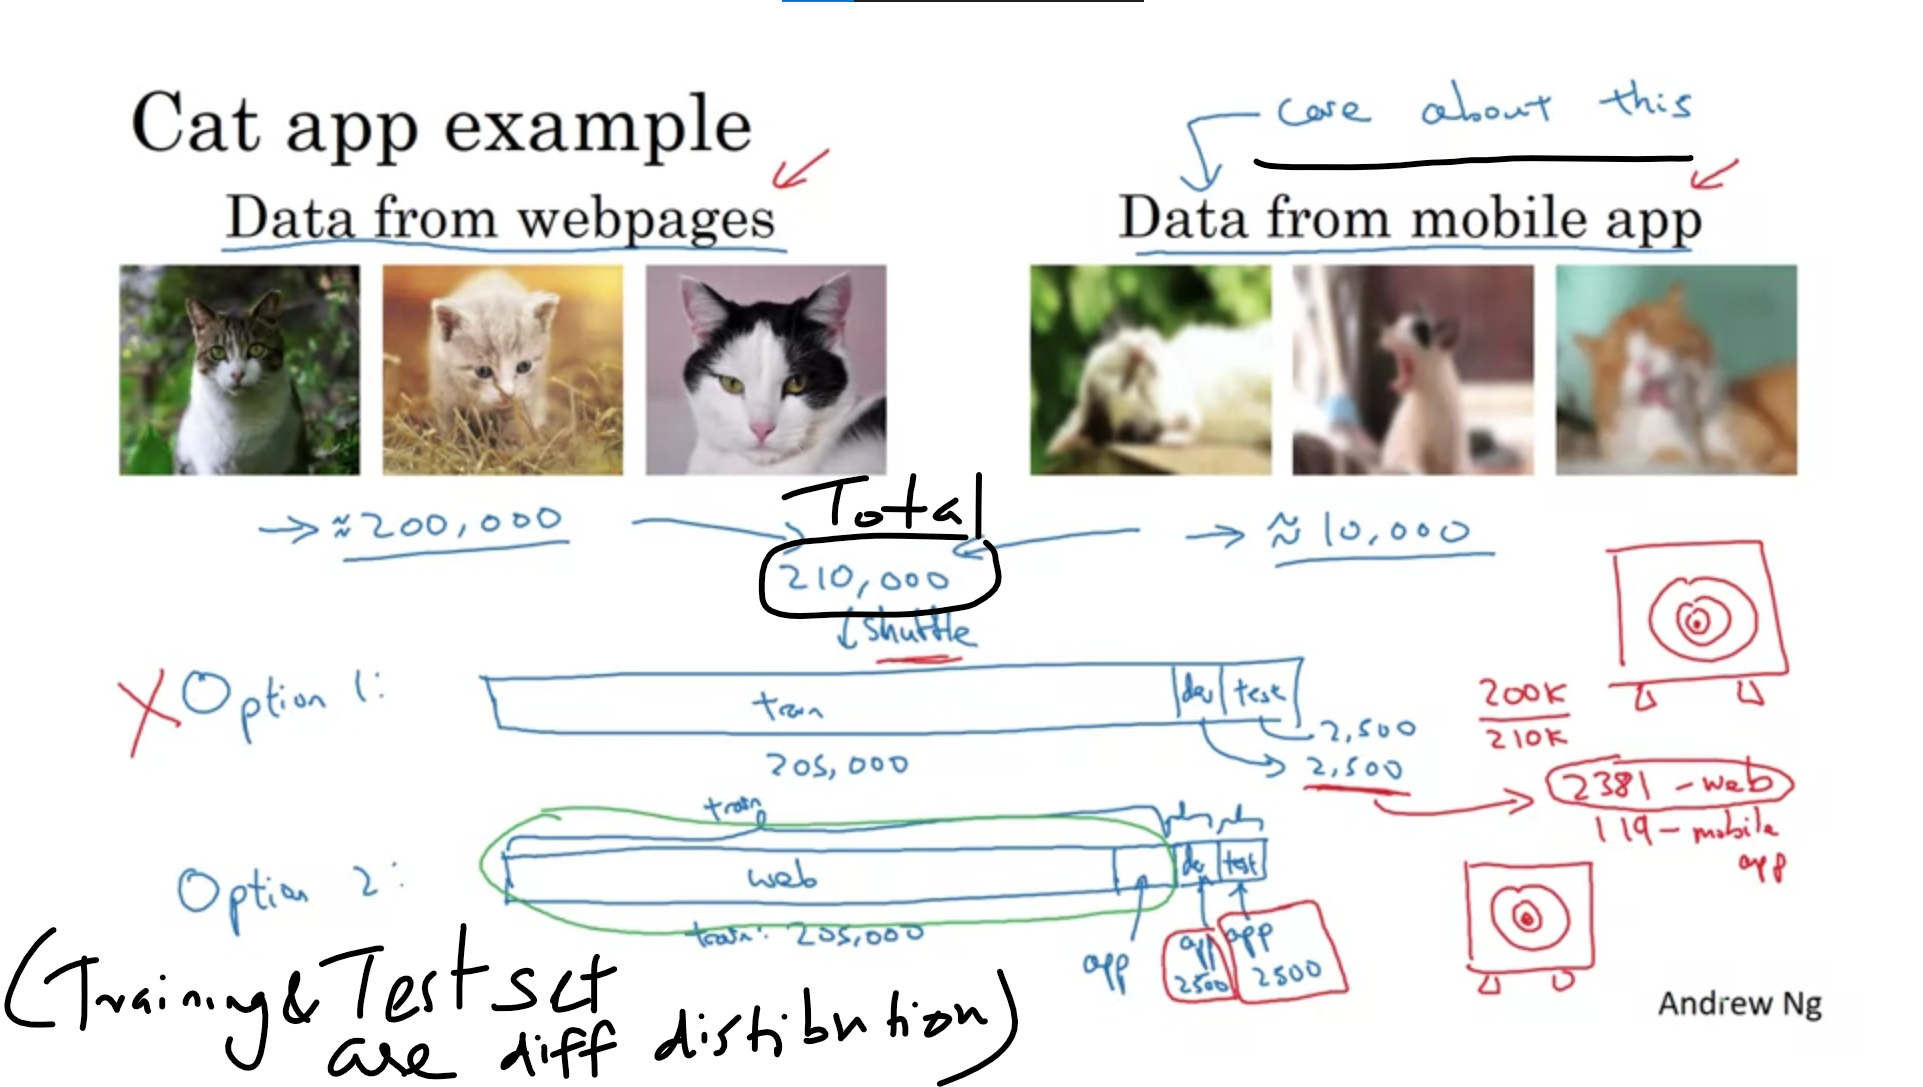 Cat app example
care about this
Data from webpages
Data from mobile app
→ ≈ 200,000
Total
→ ≈ 10,000
210,000
shuffle
X Option 1:
train
dev
test
205,000
2,500
2,500
200K
210K
2381 - web
119 - mobile
app
train
Option 2:
web
dev
test
train: 205,000
app
app
2500
app
2500
(Training & Test set
are diff distribution)
Andrew Ng